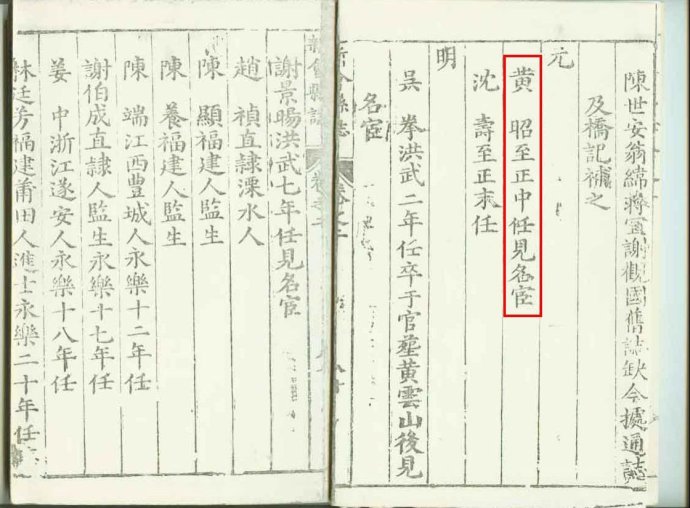 陳世安翁緯蔣寅謝觀國舊誌缺今據通誌
及橋記補之
元
黄 昭至正中任見名宦
沈 壽至正末任
明
吳 奉洪武二年任卒于官塟黄雲山後見
名宦
新會縣誌 卷之二
謝景暘洪武七年任見名宦
趙 禎直隷溧水人
陳 顯福建人監生
陳 養福建人監生
陳 端江西豊城人永樂十二年任
謝伯成直隷人監生永樂十七年任
姜 中浙江遂安人永樂十八年任
林廷芳福建莆田人進士永樂二十年任